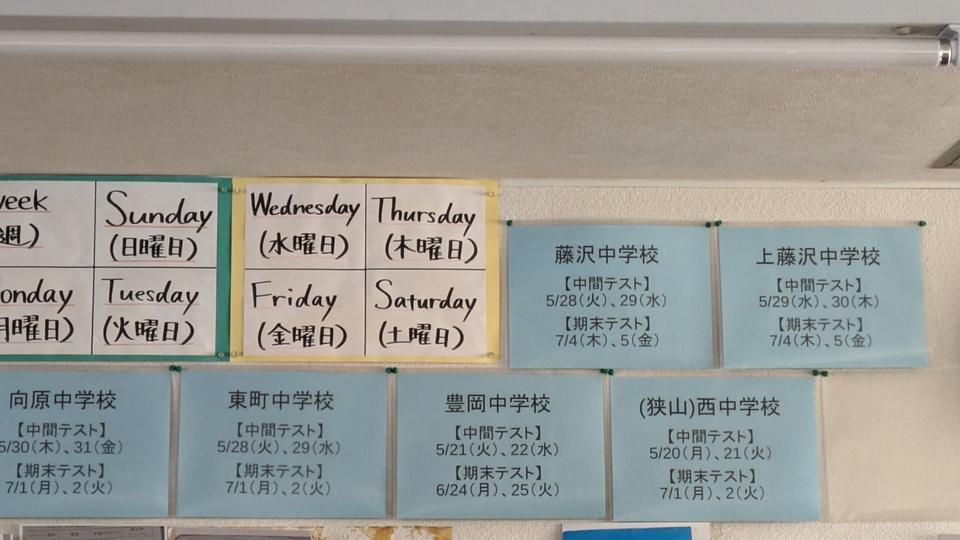 Sunday
(日曜日)
Tuesday
(火曜日)
Wednesday
(水曜日)
Thursday
(木曜日)
Friday
(金曜日)
Saturday
(土曜日)
藤沢中学校
【中間テスト】
5/28(火)、29(水)
【期末テスト】
7/4(木)、5(金)
上藤沢中学校
【中間テスト】
5/29(水)、30(木)
【期末テスト】
7/4(木)、5(金)
向原中学校
【中間テスト】
5/30(木)、31(金)
【期末テスト】
7/1(月)、2(火)
東町中学校
【中間テスト】
5/28(火)、29(水)
【期末テスト】
7/1(月)、2(火)
豊岡中学校
【中間テスト】
5/21(火)、22(水)
【期末テスト】
6/24(月)、25(火)
(狭山)西中学校
【中間テスト】
5/20(月)、21(火)
【期末テスト】
7/1(月)、2(火)